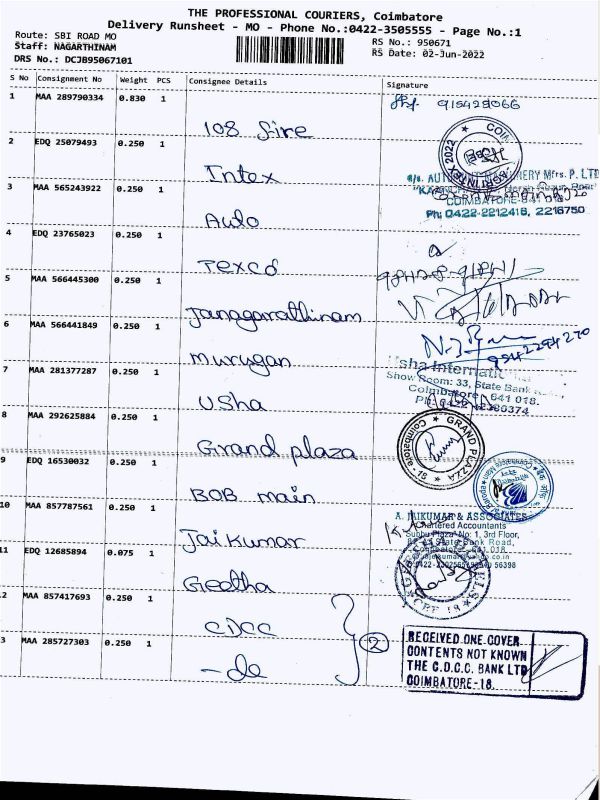 THE PROFESSIONAL COURIERS, Coimbatore
Delivery Runsheet - MO - Phone No.:0422-3505555 - Page No.:1
Route: SBI ROAD MO
Staff: NAGARTHINAM
DRS No.: DCJB95067101
RS No.: 950671
RS Date: 02-Jun-2022
S No Consignment No Weight PCS Consignee Details Signature
1 MAA 289790334 0.830 1
108 fire
2 EDQ 25079493 0.250 1
Intex
3 MAA 565243922 0.250 1
Auto
MERY Mfrs. P. LTD
COIMBATORE-641 018
Ph: 0422-2212418, 2216750
4 EDQ 23765023 0.250 1
Texco
5 MAA 566445300 0.250 1
Janagarathinam
6 MAA 566441849 0.250 1
murugan
9942294270
7 MAA 281377287 0.250 1
Usha
Usha International
Show Room: 33, State Bank
Coimbatore - 641 018.
8 MAA 292625884 0.250 1
Grand plaza
GRAND PLAZA
9 EDQ 16530032 0.250 1
BOB main
10 MAA 857787561 0.250 1
Jai Kumar
A. JAIKUMAR & ASSOCIATES
Chartered Accountants
Subbu Plaza No: 1, 3rd Floor,
State Bank Road,
11 EDQ 12685894 0.075 1
Geetha
2 MAA 857417693 0.250 1
CDCC
3 MAA 285727303 0.250 1
- do
2
RECEIVED ONE COVER
CONTENTS NOT KNOWN
THE C.D.C.C. BANK LTD
COIMBATORE-18.